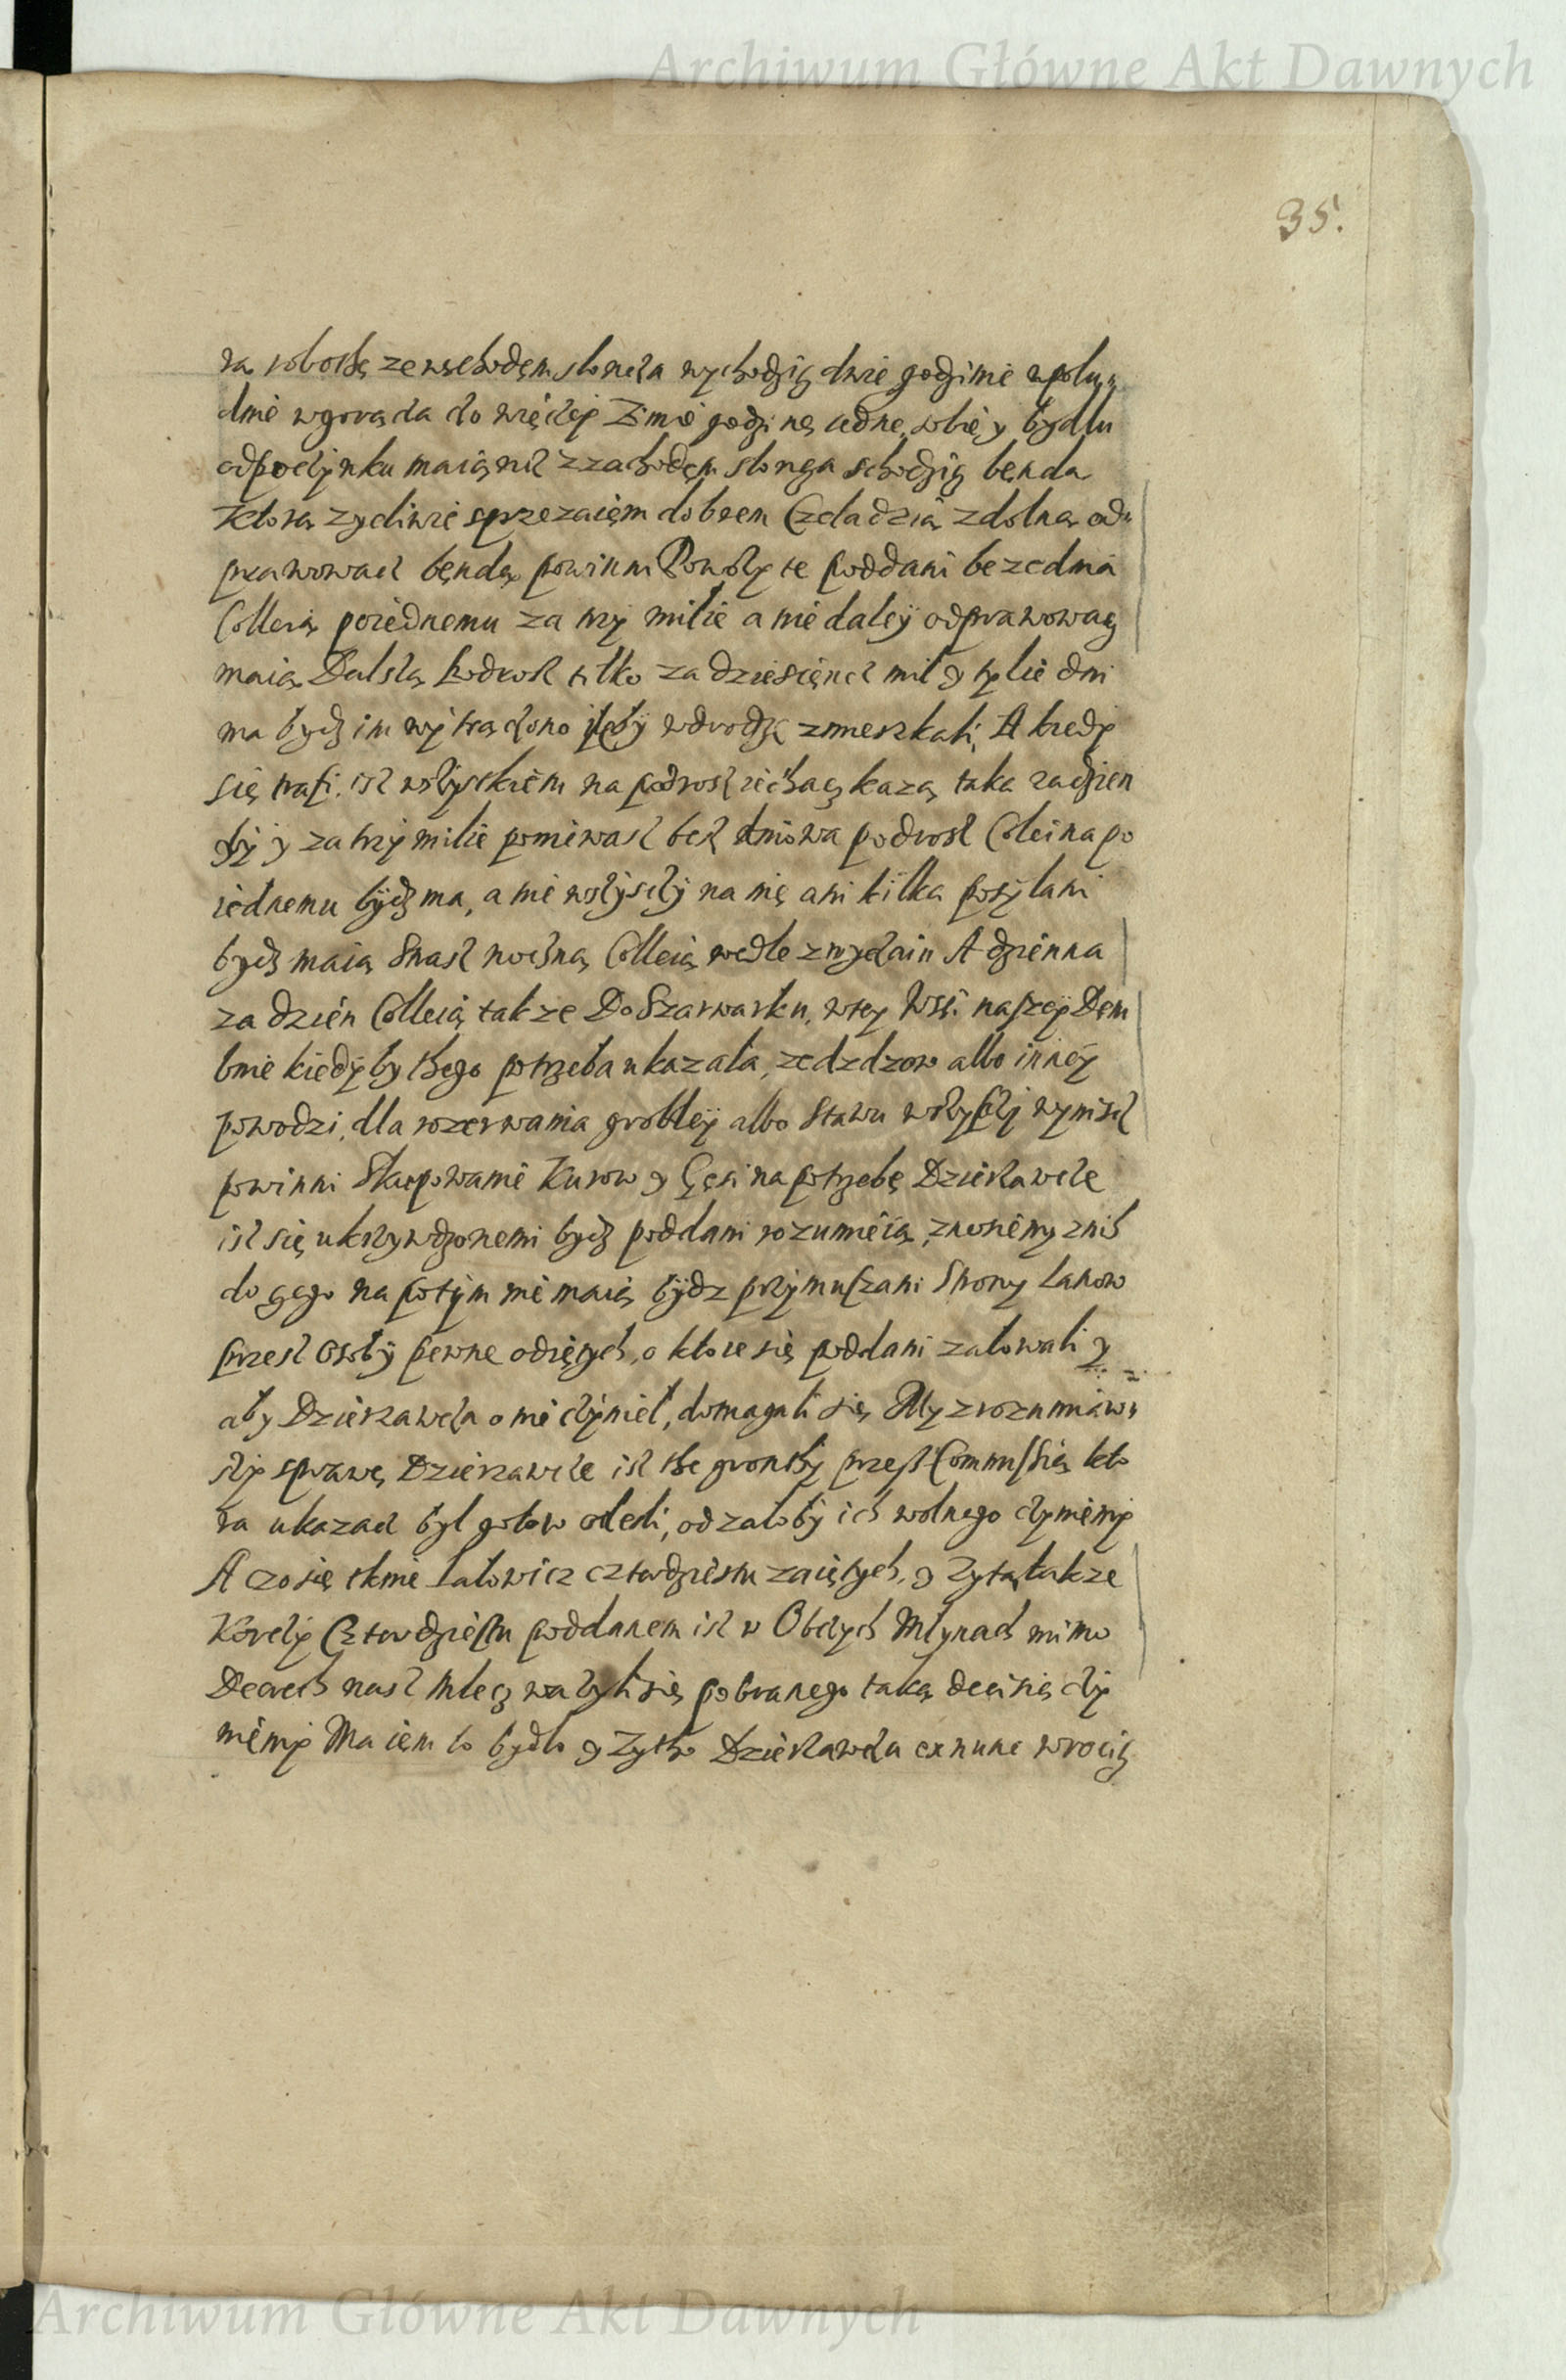 Archiwum Główne Akt Dawnych
35.
na robothę ze wschodęm słoncza wychodzicz dwie godzinie w połu„
dnie w gorącza co więczej Zimie godzinę iedne, sobie y bydłu
odpoczynku maiąncz z zachodęm słoncza schodzicz bęnda
Którą zyczliwie sprzezaięm dobrem Czeladzią zdolną od„
prawowacz bęndą powinni Powozy te poddani bezedna
Colleią poiednemu za trzy milie a nie daley odprawowacz
maią Dalszą Podrosz tilko za dziesięncz mil y tylie dni
ma bydz im wytrączono ileby w drodze zmieszkali, A kiedy
się trafi, isz wszystkiem na podrosz iechacz kazą taka za dzien
y za trzy milie poniewasz besz dniowa podrosz Coleina po
iednemu bydz ma, a nie wszyscy na nię ani kilka posyłani
bydz maią Strasz noczną Colleią wedle zwyczaiu A dzienna
za dzien Colleią takze Do Szarwarku, w tey Wsi naszey Dęm
bnie kiedy by thego potrzeba ukazała, ze dzdzow albo inney
powodzi, dla rozerwania grobley albo Stawu wszyscy wynisc
powinni Skupowanie Kurow y Gęsi na potrzebę Dzierzawcze
isz się ukrzywdzonemi bydz poddani rozumieią, znosiemy z nich
do czego na potym nie maią bydz przymuszani Strony Łanow
przesz osoby pewne odiętych, o ktore się poddani załowali y
aby Dzierzawcza o nie czynieł, domagali się My zrozumiaw„
szy sprawę Dzierzawcze isz the gronthy przesz Commissią kto
ra ukazacz był gotow odeszli, od załoby ich wolnego czyniemy
A czo się tknie Iałowicz cztordziestu zaiętych, y Zyta także
Korczy Cztordziestu poddanem isz w Obczych Młynach mimo
Decreth nasz mlecz wazyli się pobranego taką decisią czy
niemy Ma iem to bydło y Zytho Dzierzawcza exnunc wrocicz
Archiwum Główne Akt Dawnych